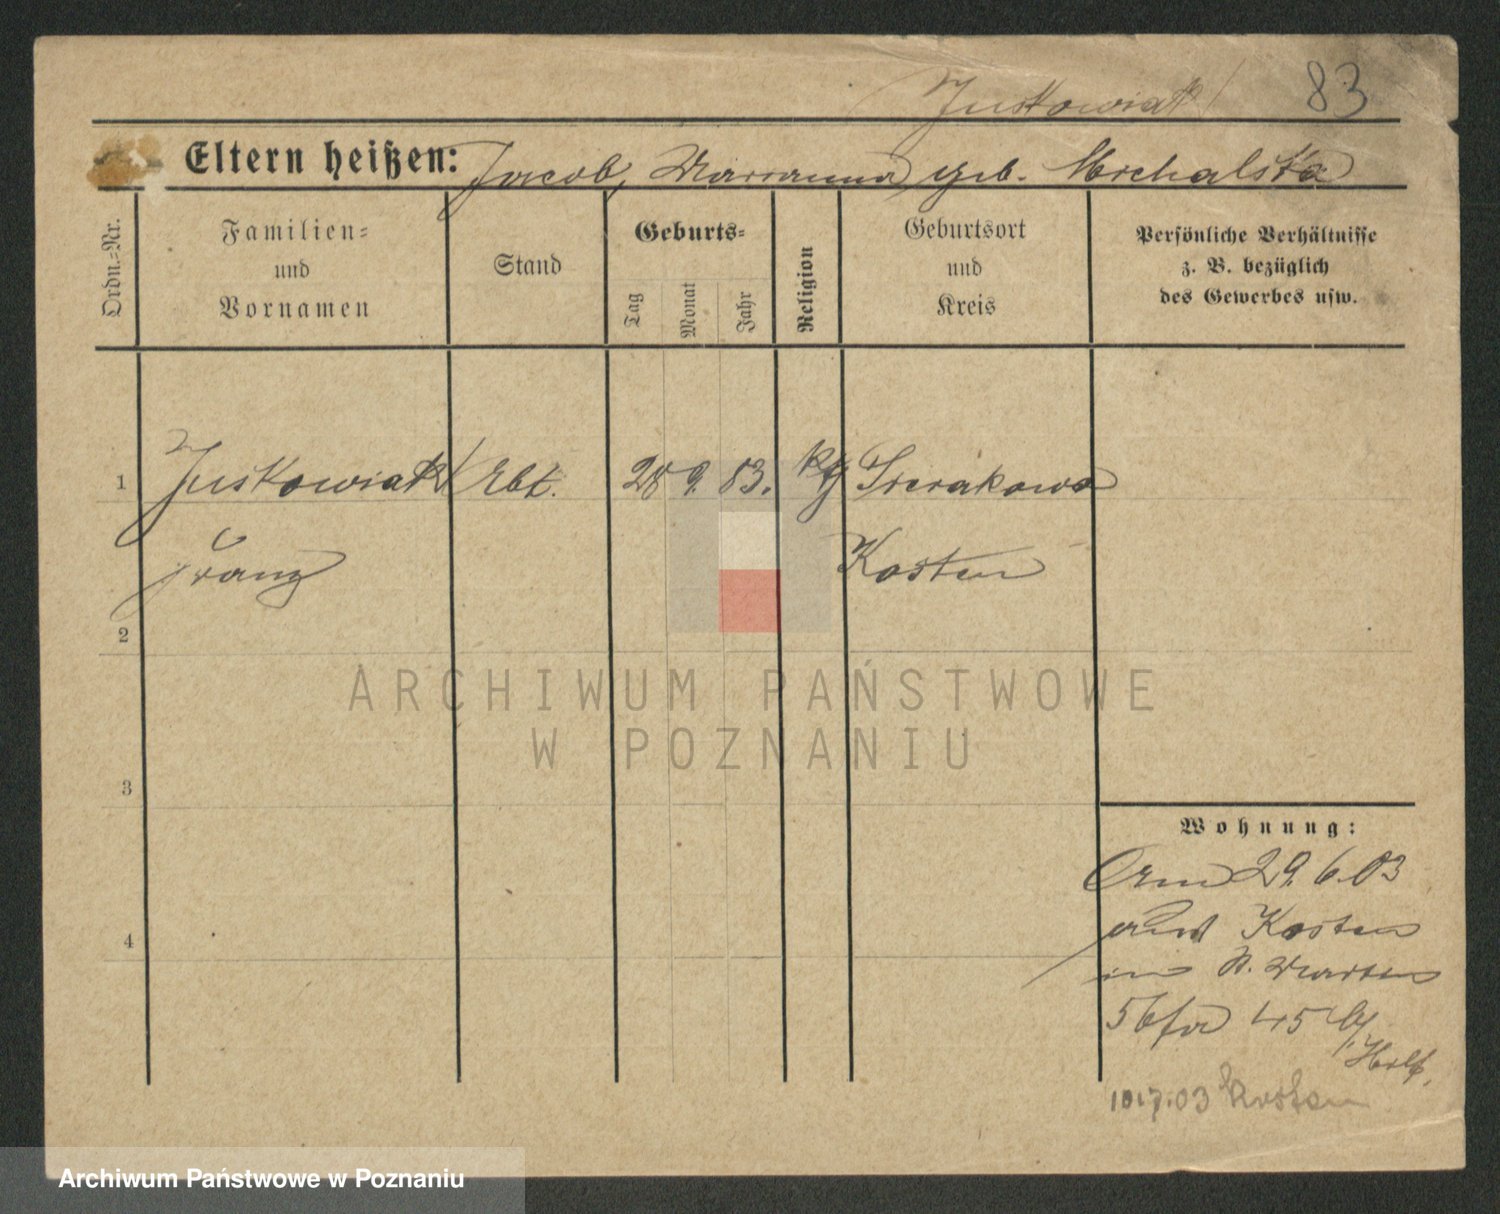 Juskowiak 83
Eltern heißen: Jacob, Marianna geb. Michalska
Ordn.-Nr.
Familien-
und
Vornamen
Stand
Geburts-
Tag
Monat
Jahr
Religion
Geburtsort
und
Kreis
Persönliche Verhältnisse
z. B. bezüglich
des Gewerbes usw.
1 Juskowiak Arbt. 28 9. 83. kg Sierakowo
Franz Kosten
2
3
4
Wohnung:
29. 6. 03
Kosten
56 45
10.7.03 Kosten
ARCHIWUM PAŃSTWOWE
W POZNANIU
Archiwum Państwowe w Poznaniu